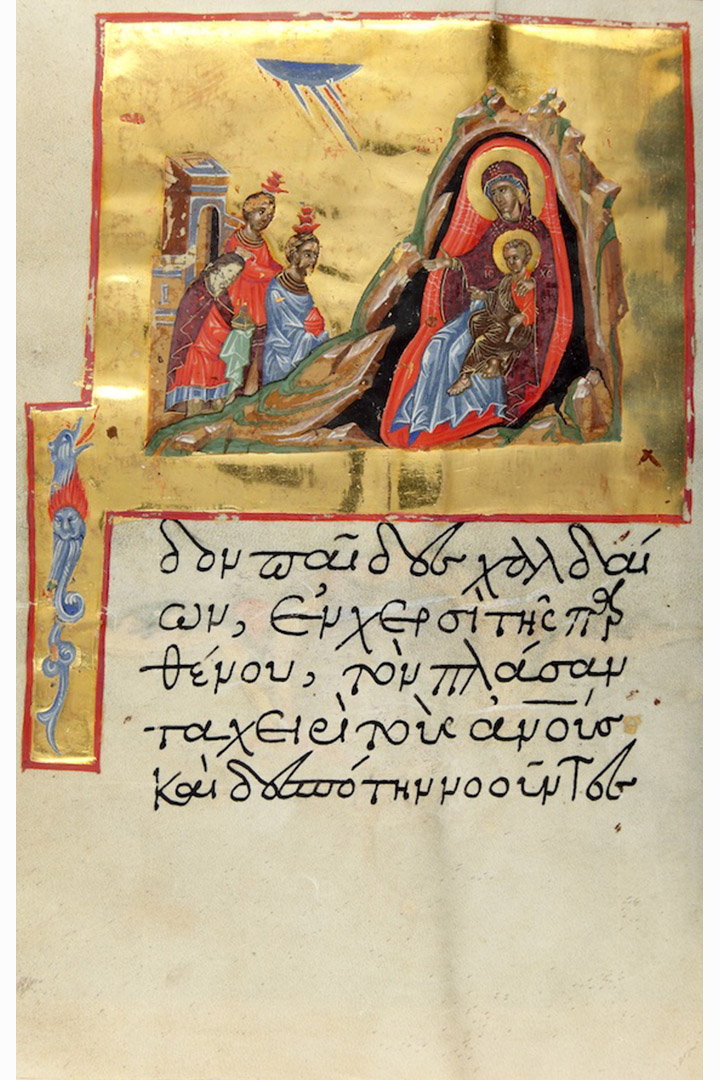 ΙC ΧC
Ιδον παῖδες χαλδαί
ων, ἐν χερσὶ τῆς παρ
θένου, τὸν πλάσαν
τα χειρὶ τοὺς ἀν̅ο̅υς
καὶ δεσπότην νοοῦντες